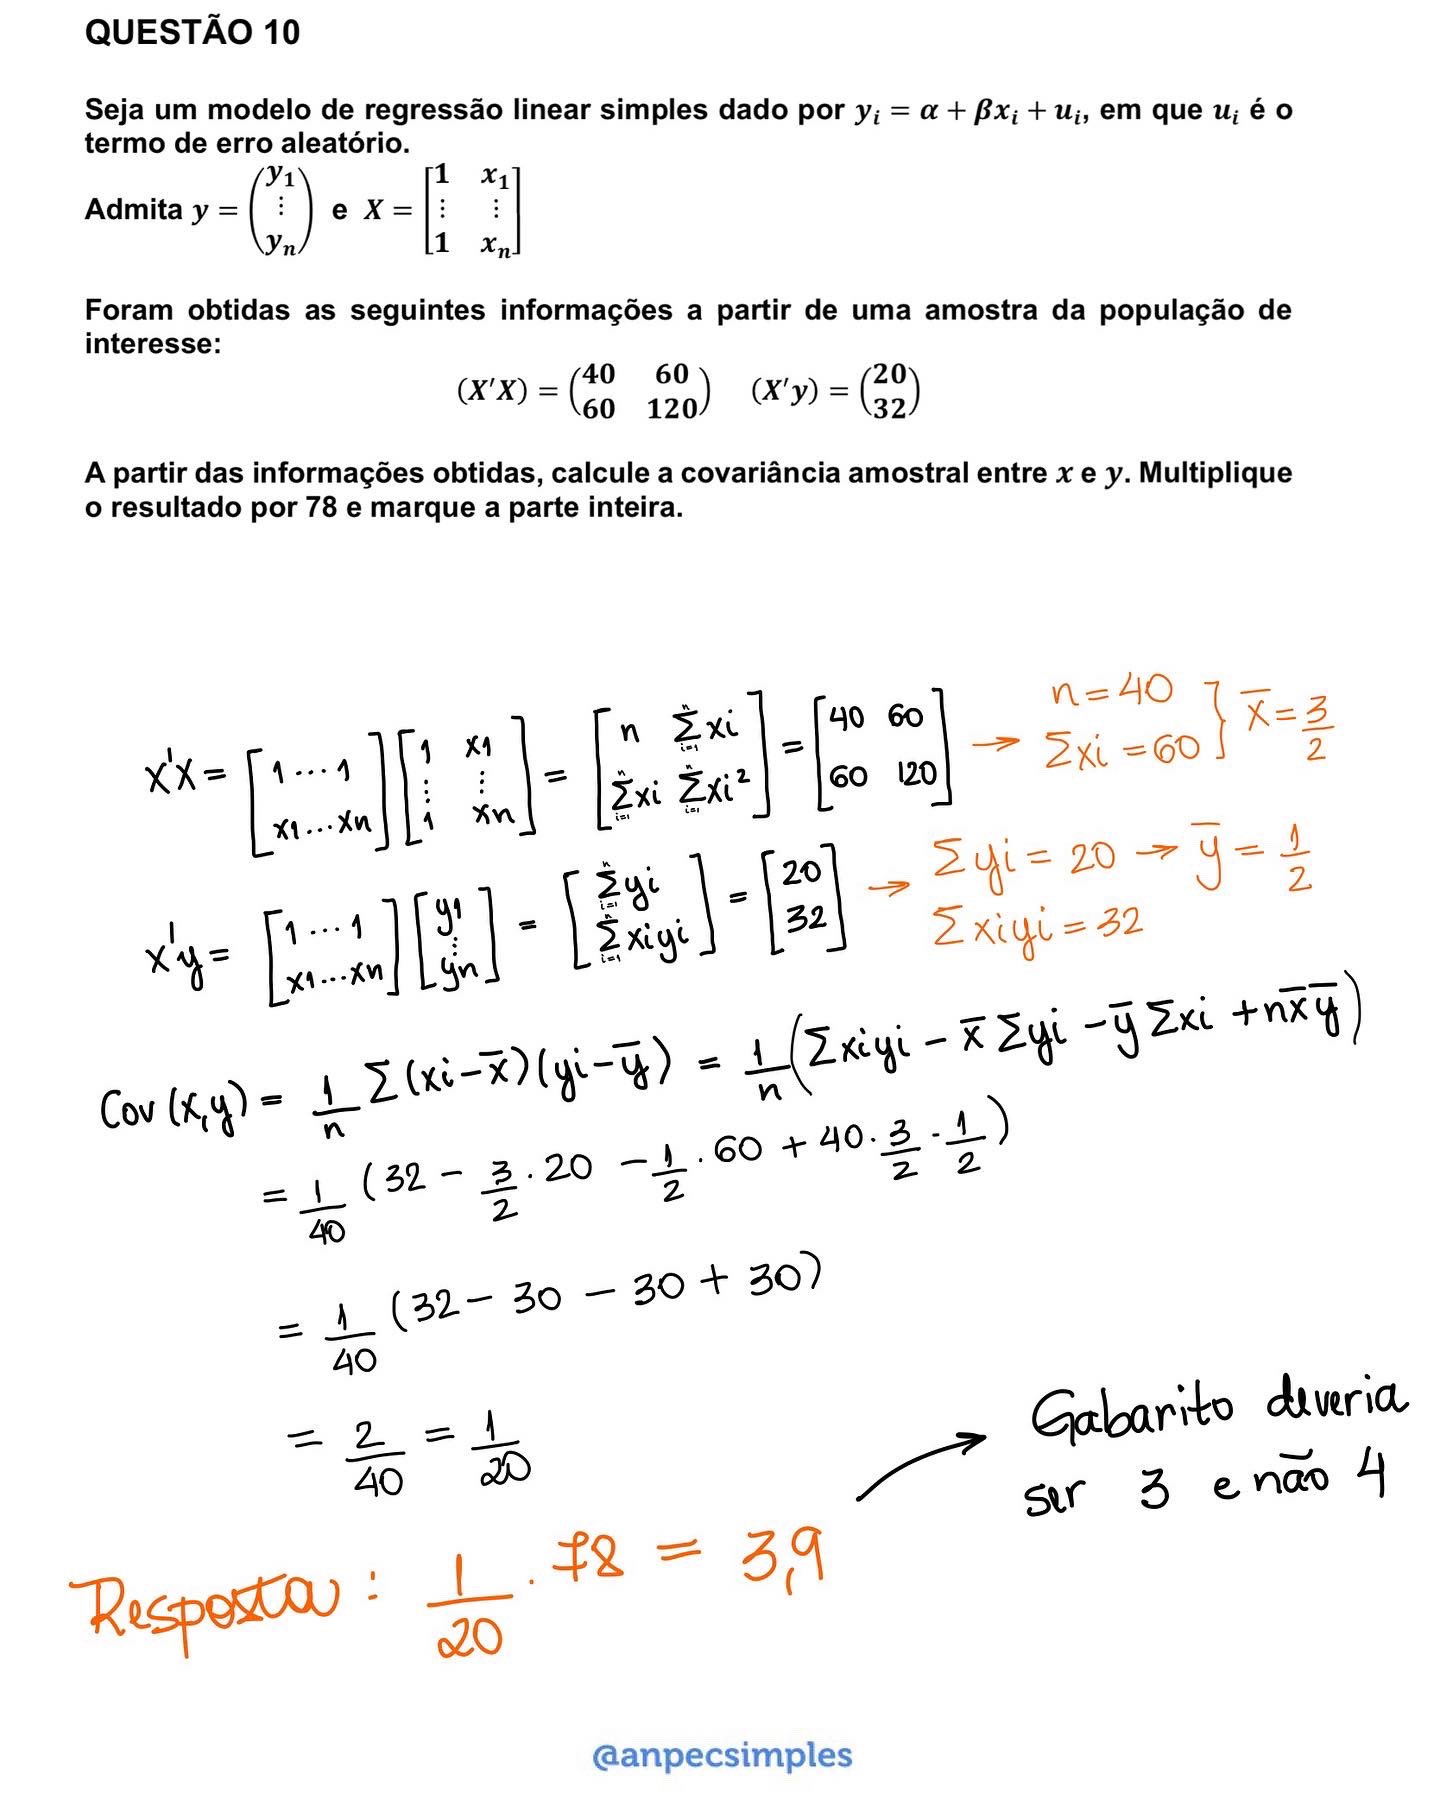 QUESTÃO 10
Seja um modelo de regressão linear simples dado por yᵢ = α + βxᵢ + uᵢ, em que uᵢ é o
termo de erro aleatório.
Admita y = (y₁ ⋮ yₙ) e X = [1 x₁ ⋮ ⋮ 1 xₙ]
Foram obtidas as seguintes informações a partir de uma amostra da população de
interesse:
(X′X) = (40 60 60 120) (X′y) = (20 32)
A partir das informações obtidas, calcule a covariância amostral entre x e y. Multiplique
o resultado por 78 e marque a parte inteira.
X'X = [1 ... 1 x1 ... xn] [1 x1 ⋮ ⋮ 1 xn] = [n Σⁿᵢ₌₁ xi Σⁿᵢ₌₁ xi Σⁿᵢ₌₁ xi²] = [40 60 60 120] → n = 40 Σxi = 60 } x̅ = 3/2
X'y = [1 ... 1 x1 ... xn] [y1 ⋮ yn] = [Σⁿᵢ₌₁ yi Σⁿᵢ₌₁ xiyi] = [20 32] → Σyi = 20 → y̅ = 1/2 Σxiyi = 32
Cov (x,y) = 1/n Σ(xi − x̅)(yi − y̅) = 1/n (Σxiyi − x̅ Σyi − y̅ Σxi + nx̅y̅)
= 1/40 (32 − 3/2 · 20 − 1/2 · 60 + 40 · 3/2 · 1/2)
= 1/40 (32 − 30 − 30 + 30)
= 2/40 = 1/20
Gabarito deveria
ser 3 e não 4
Resposta: 1/20 · 78 = 3,9
@anpecsimples